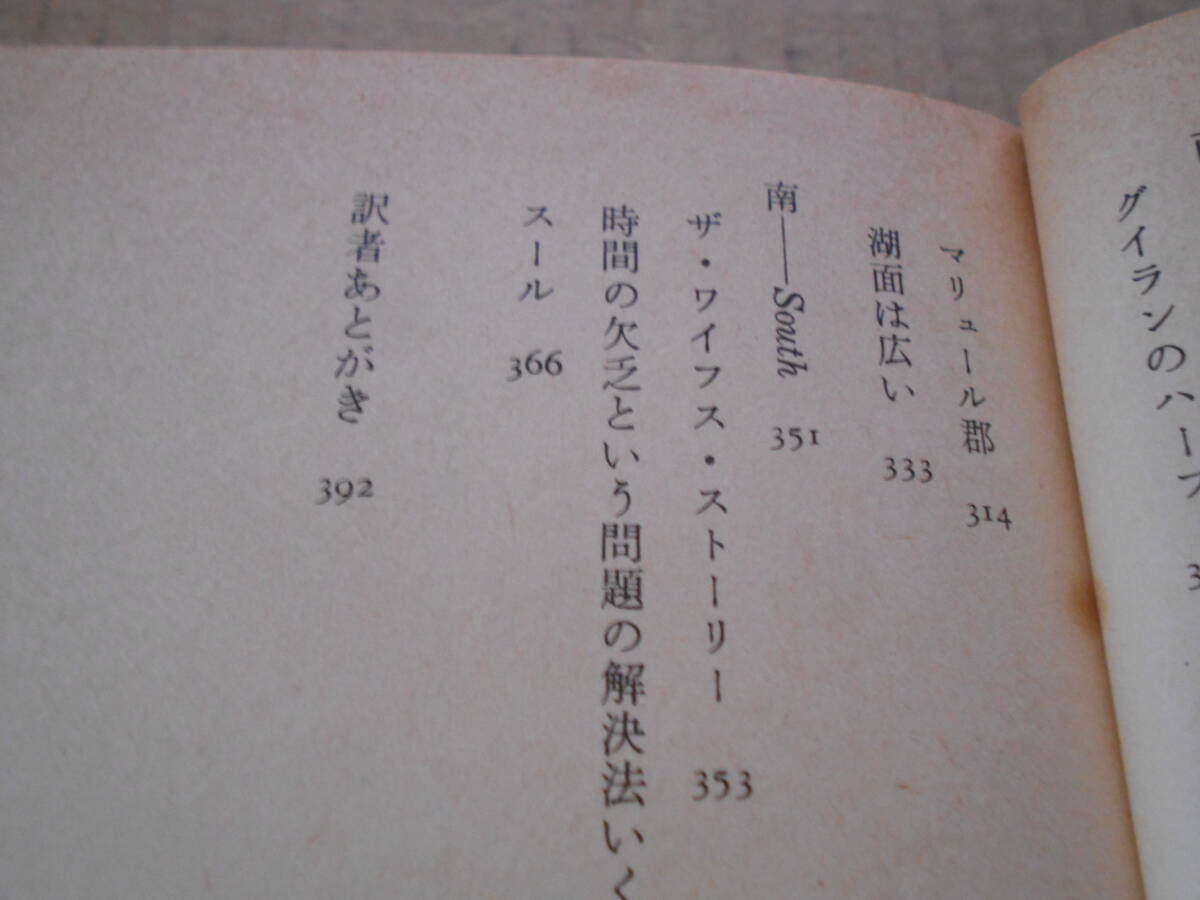 グイランのハープ
マリュール郡 314
湖面は広い 333
南——South 351
ザ・ワイフス・ストーリー 353
時間の欠乏という問題の解決法いく
スール 366
訳者あとがき 392